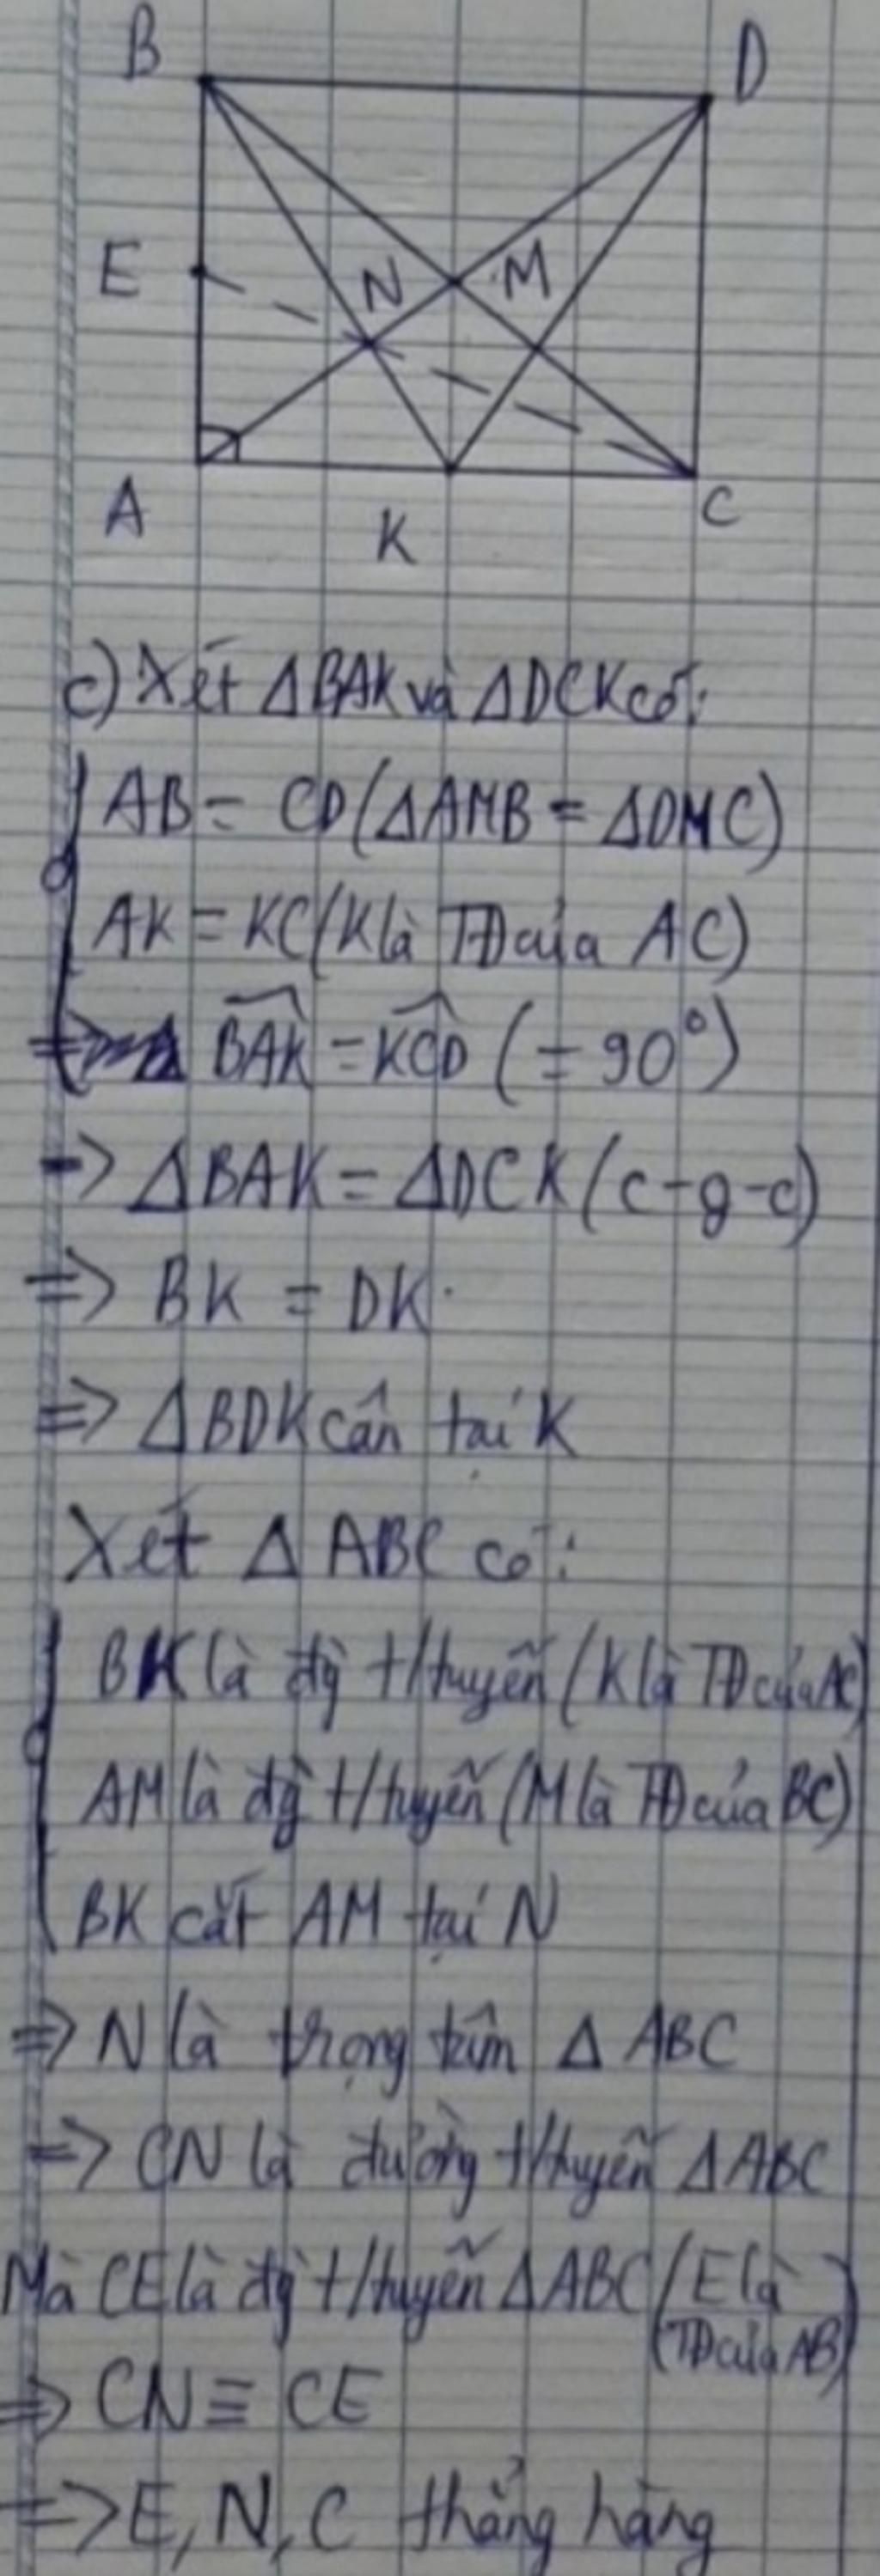 B D
E N M
A K C
c) Xét ΔBAK và ΔDCK có:
AB = CD (ΔAMB = ΔDMC)
AK = KC (K là TĐ của AC)
BAK̂ = KCD̂ (= 90°)
=> ΔBAK = ΔDCK (c-g-c)
=> BK = DK.
=> ΔBDK cân tại K
Xét Δ ABC có:
BK là đg t/tuyến (K là TĐ của AC)
AM là đg t/tuyến (M là TĐ của BC)
BK cắt AM tại N
=> N là trọng tâm Δ ABC
=> CN là đường t/tuyến ΔABC
Mà CE là đg t/tuyến ΔABC (E là
TĐ của AB)
=> CN ≡ CE
=> E, N, C thẳng hàng